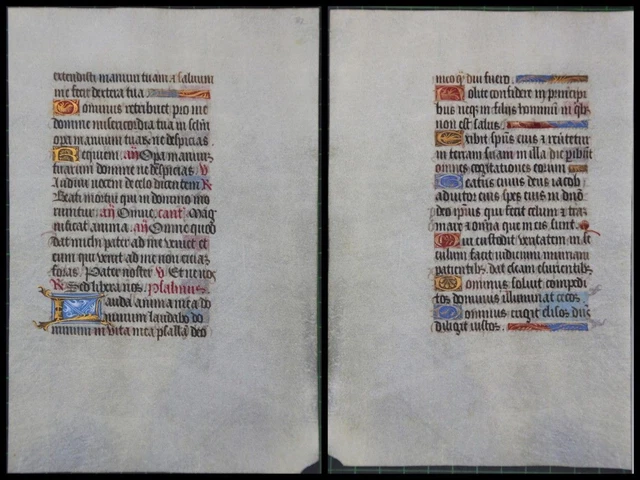 extendisti manum tuam & saluum
me fecit dextera tua
Dominus retribuet pro me
domine misericordia tua in sclm
opa manuum tuar ne despicias.
Requiem. an Opa manuum
tuarum domine ne despicias. V
Audiui vocem de celo dicentem R
Beati mortui qui in domino mo
riuntur. an Omne. cant Mag
nificat anima. an Omne quod
dat michi pater ad me veniet et
eum qui venit ad me non eicias
foras. Pater noster V Et ne nos
R Sed libera nos. psalmus.
Lauda anima mea do
minum laudabo do
minum in vita mea psallam deo
meo q diu fuero.
Nolite confidere in principi
bus neq in filijs hominum in qbs
non est salus.
Exibit spus eius & reuertetur
in terram suam in illa die peribunt
omnes cogitationes eorum
Beatus cuius deus iacob
adiutor eius spes eius in dno
deo ipsius qui fecit celum & tram
mare & omnia que in eis sunt.
Qui custodit veritatem in se
culum facit iudicium iniuriam
patientibs. dat escam esurientibs.
Dominus soluit compedi
tos dominus illuminat cecos.
Dominus erigit elisos dns
diligit iustos.